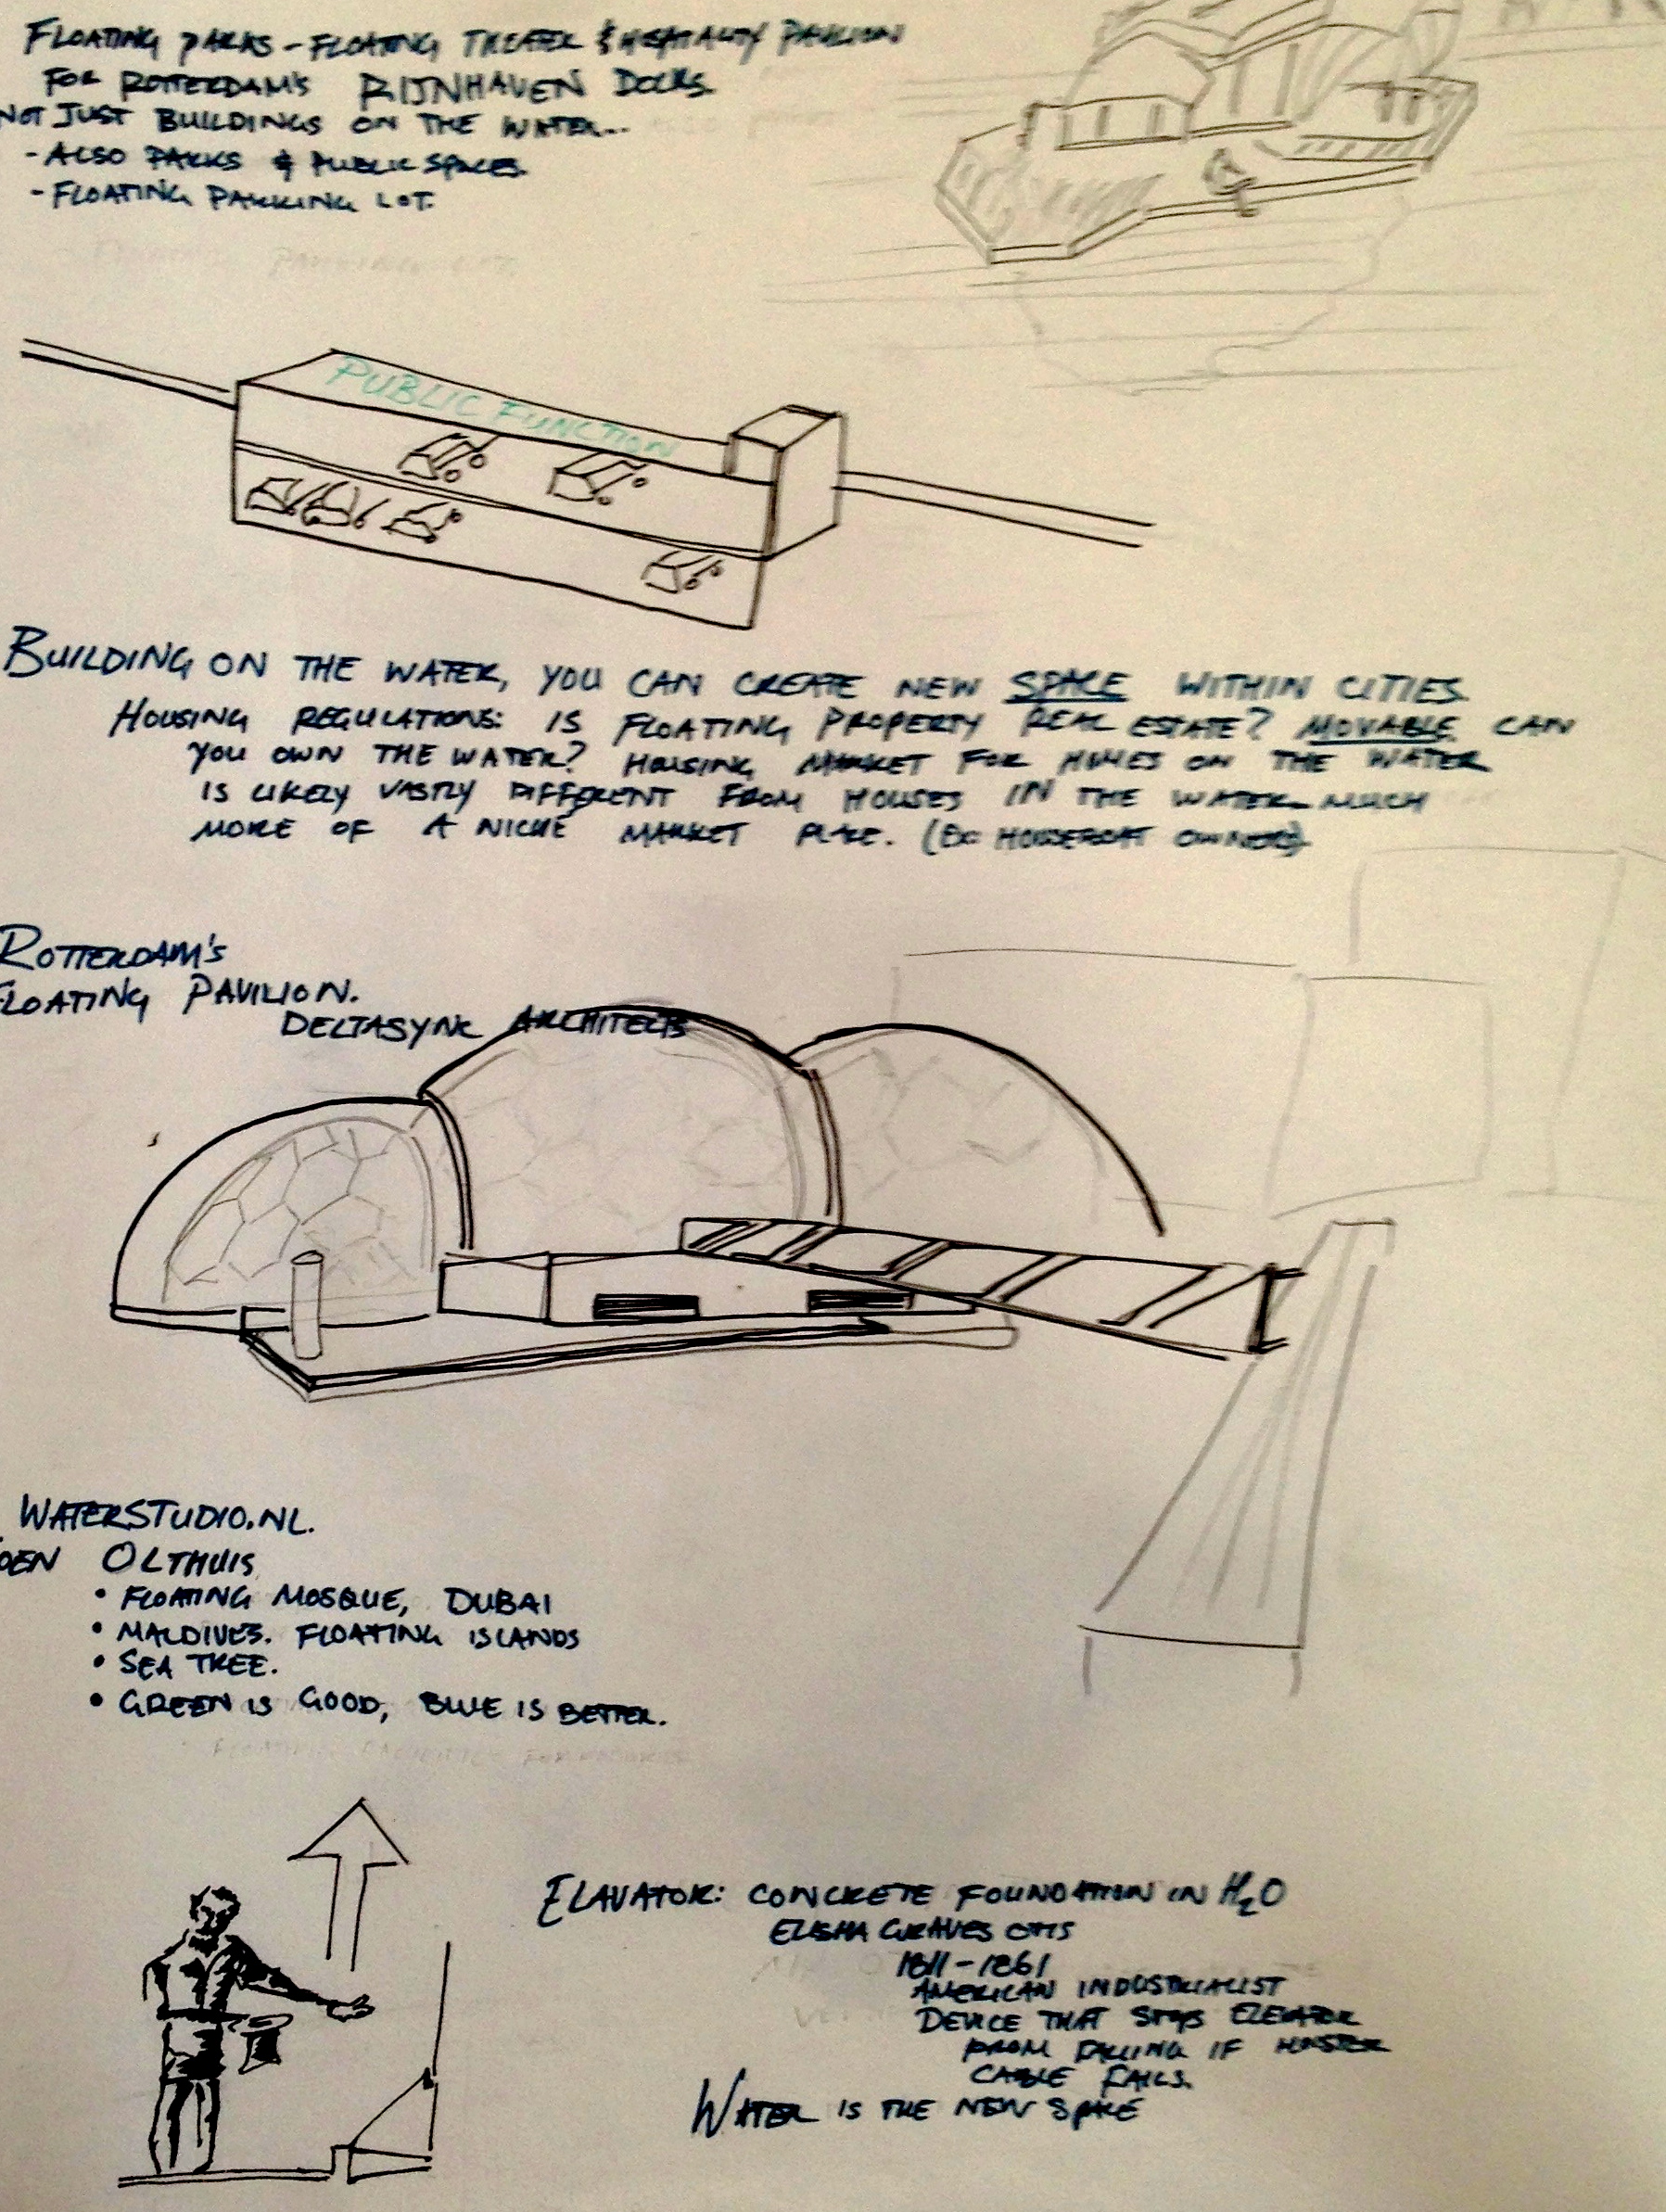 FLOATING PARKS - FLOATING THEATER & HOSPITALITY PAVILION
FOR ROTTERDAM'S RIJNHAVEN DOCKS.
NOT JUST BUILDINGS ON THE WATER...
- ALSO PARKS & PUBLIC SPACES
- FLOATING PARKING LOT.
PUBLIC FUNCTION
BUILDING ON THE WATER, YOU CAN CREATE NEW SPACE WITHIN CITIES.
HOUSING REGULATIONS: IS FLOATING PROPERTY REAL ESTATE? MOVABLE CAN
YOU OWN THE WATER? HOUSING MARKET FOR HOMES ON THE WATER
IS LIKELY VASTLY DIFFERENT FROM HOUSES IN THE WATER MUCH
MORE OF A NICHE MARKET PLACE. (EX: HOUSEBOAT OWNERS)
ROTTERDAM'S
FLOATING PAVILION.
DELTASYNC ARCHITECTS
WATERSTUDIO.NL.
OEN OLTHUIS
• FLOATING MOSQUE, DUBAI
• MALDIVES. FLOATING ISLANDS
• SEA TREE.
• GREEN IS GOOD, BLUE IS BETTER.
ELAVATOR: CONCRETE FOUNDATION IN H2O
ELISHA GRAVES OTIS
1811-1861
AMERICAN INDUSTRIALIST
DEVICE THAT STOPS ELEVATOR
FROM FALLING IF HOISTER
CABLE FAILS.
WATER IS THE NEW SPACE